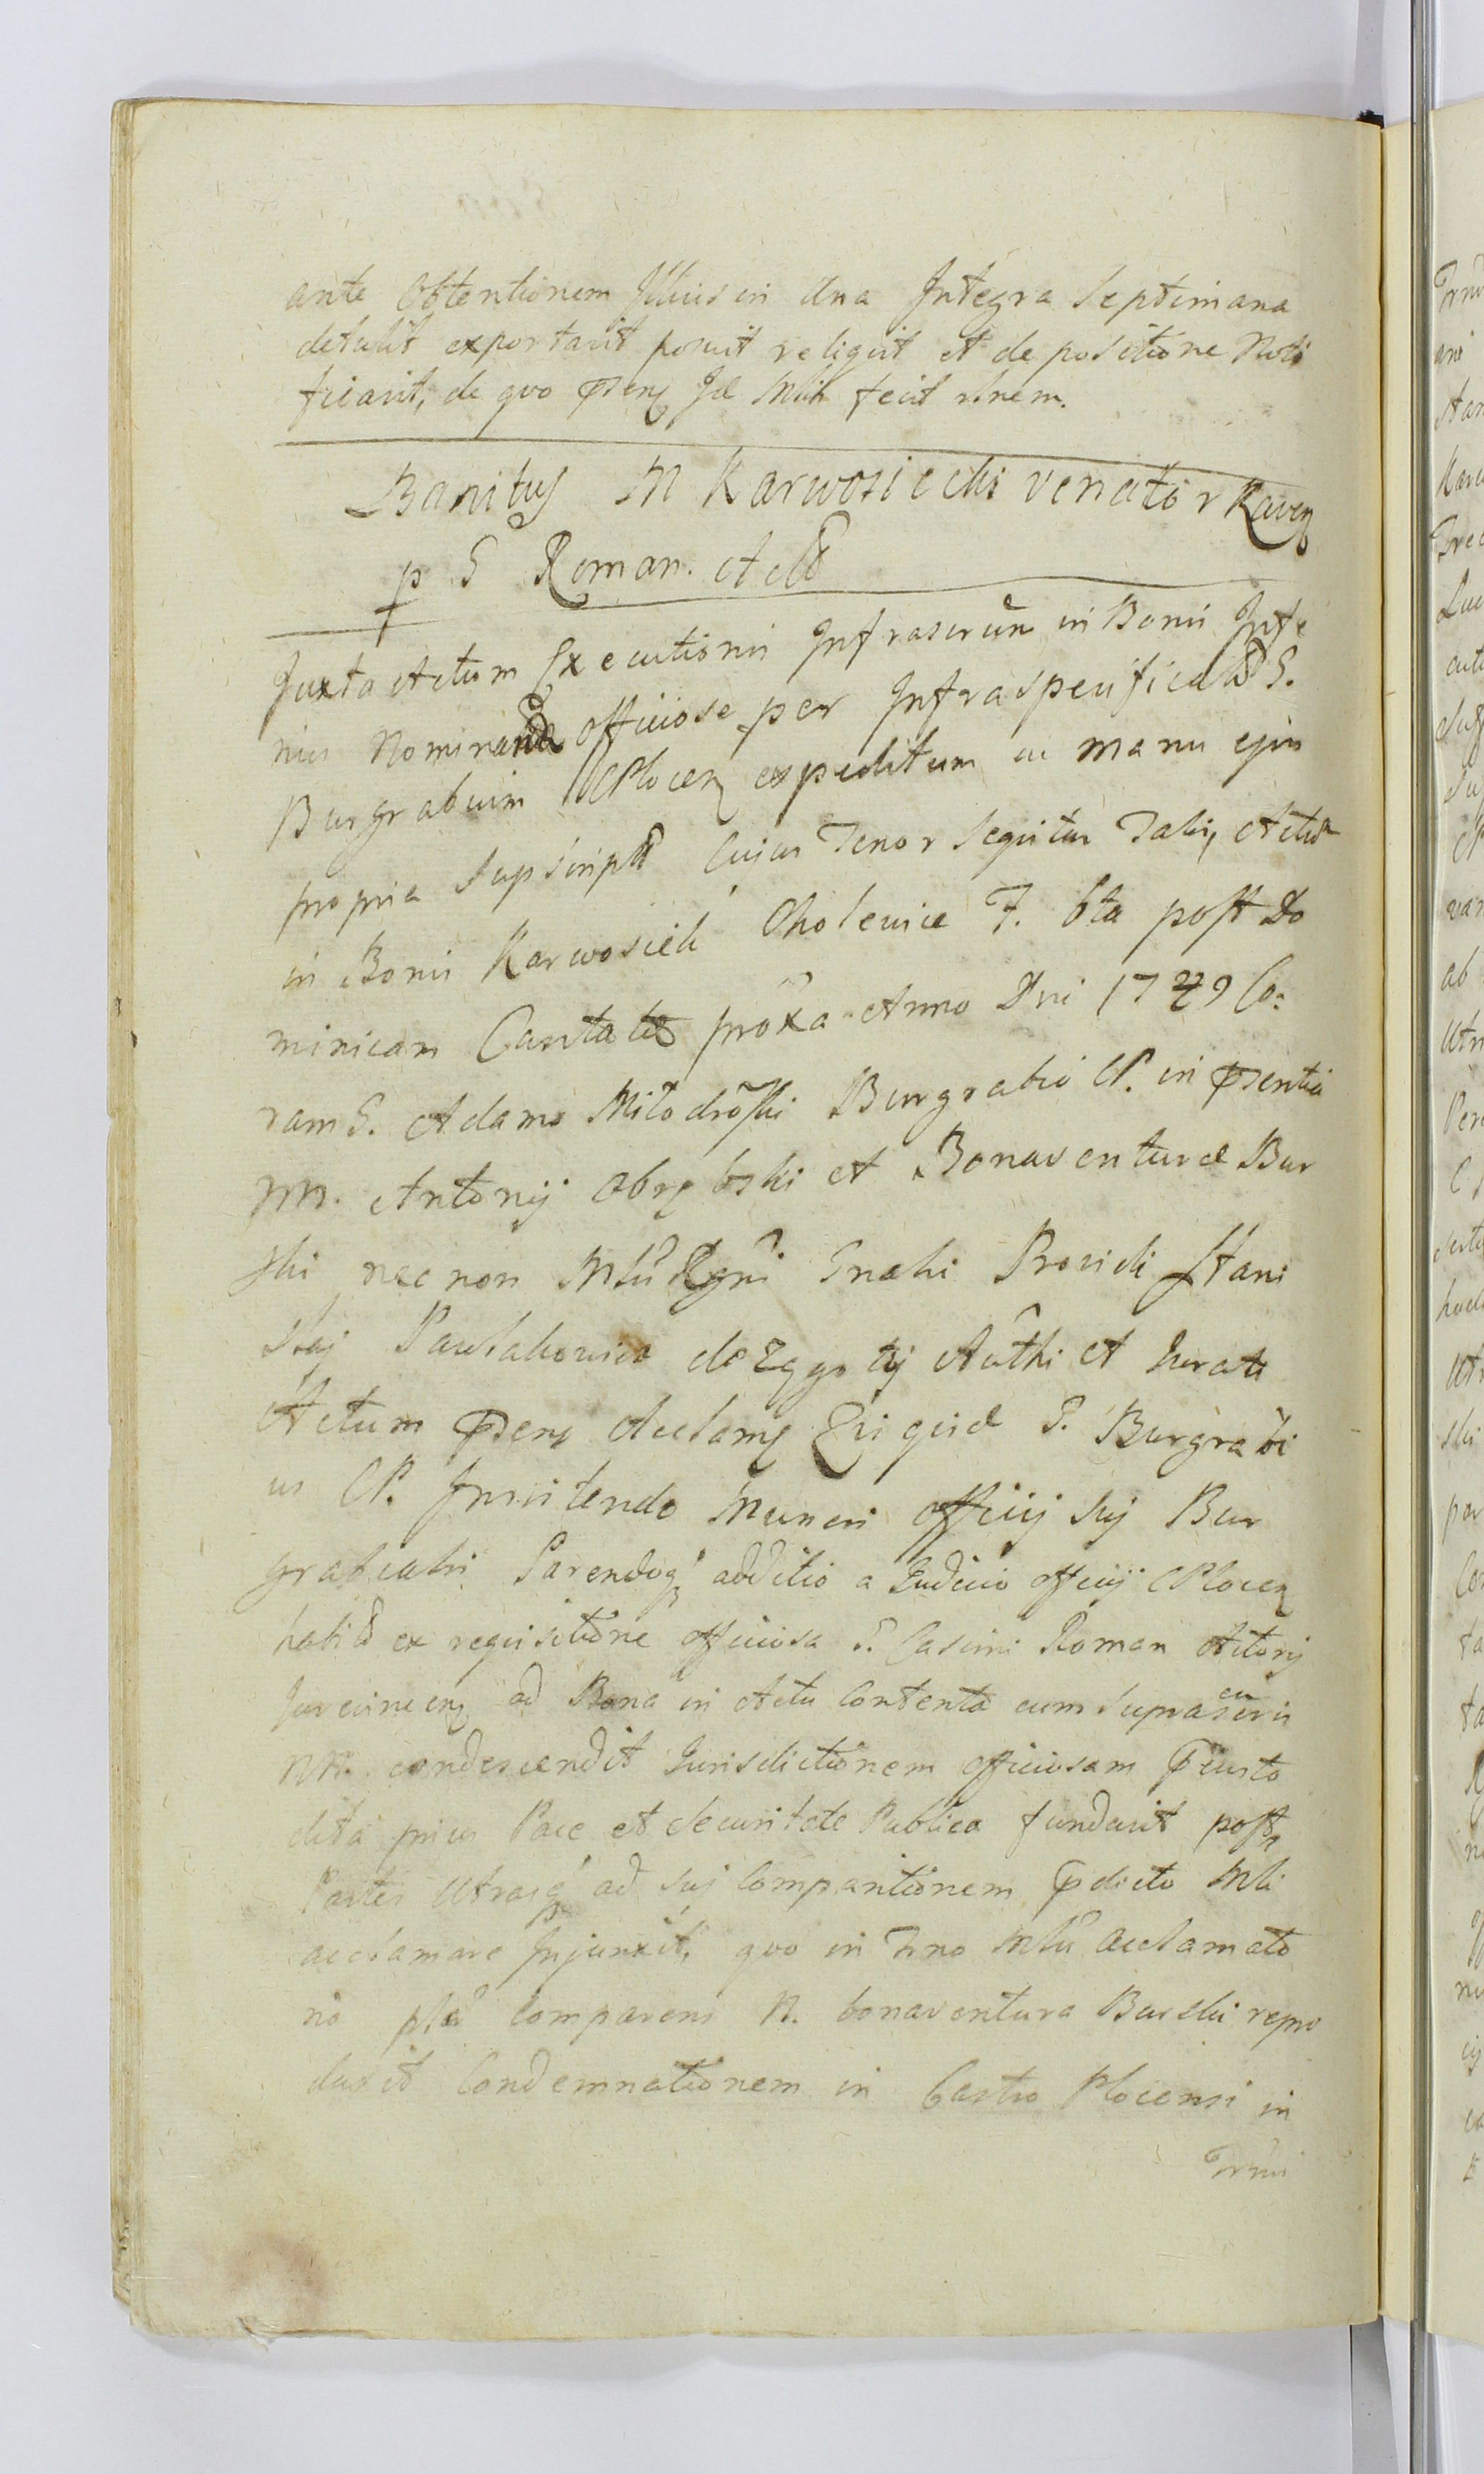 ante Obtentionem Illius in Una Integra Septimana
detulit exportavit posuit reliquit et de positione Noti
ficavit, de quo præns Idē Mlis fecit rlnem.
Banitus M Karwosiecki venator Raven
p G Roman. Act
Juxta Actum Executionis Infrascrum in Bonis Infe
rius Nominand officiose per Infraspecificat G.
Burgrabium CPlocen expeditum ac manu ejus
propria Supscript Cuius Tenor Sequitur Talis, Actum
in Bonis Karwosieki Cholewice F. 6ta post Do
minicam Cantate proxa Anno Dni 1749 Co:
ram G. Adamo Miłodroski Burgrabio CP. in præsentia
NN. Antonij Obrębski et Bonaventuræ Bur
ski nec non Mlii Rgni Gnalis Providi Stani
slaj Pawlakowicz de Zągoty Authi et Jurati
Actum præns Acclams Quiquid G. Burgrabi
us CP. Innitendo Muneri officij Suj Bur
grabialis Parendoq additio a Judicio officij CPlocen
habit ex requisitione officiosa G. Casimi Roman Actoris
ad Bona in Actu Contenta cum Suprascri
NN. condescendit Jurisdictionem officiosam
dita prius Pace et Securitate Publica fundavit post
Partes Utrasq ad Suj Comparitionem pdicto Mli
acclamare Injunxit, quo in Trno Mlii acclamato
no plr Comparens N. bonaventura Burski repro
duxit Condemnationem in Castro Plocensi in
Trmi